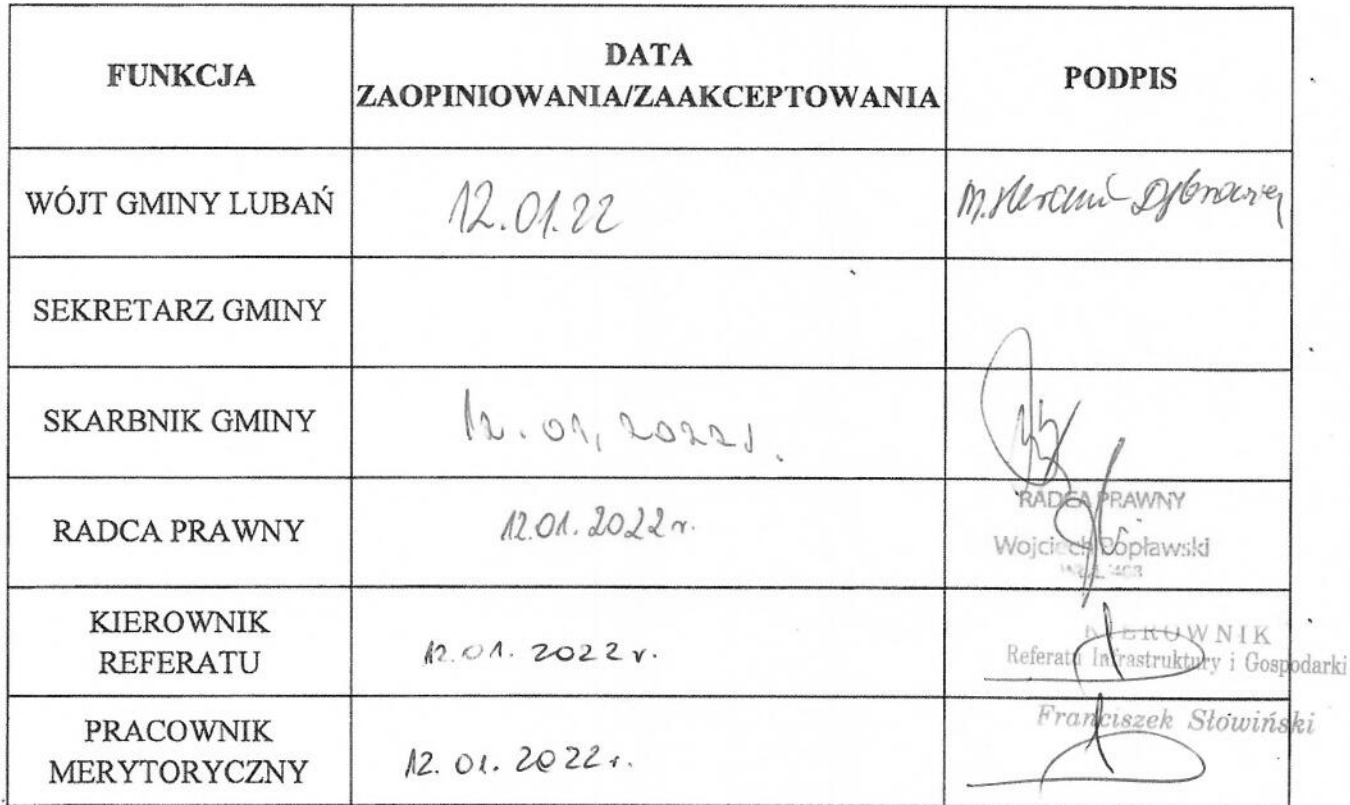 FUNKCJA
DATA
ZAOPINIOWANIA/ZAAKCEPTOWANIA
PODPIS
WÓJT GMINY LUBAŃ
12.01.22
SEKRETARZ GMINY
SKARBNIK GMINY
12.01.2022r.
RADCA PRAWNY
12.01.2022r.
RADCA PRAWNY
Wojciech Popławski
KIEROWNIK
REFERATU
12.01.2022r.
KIEROWNIK
Referatu Infrastruktury i Gospodarki
Franciszek Słowiński
PRACOWNIK
MERYTORYCZNY
12.01.2022r.